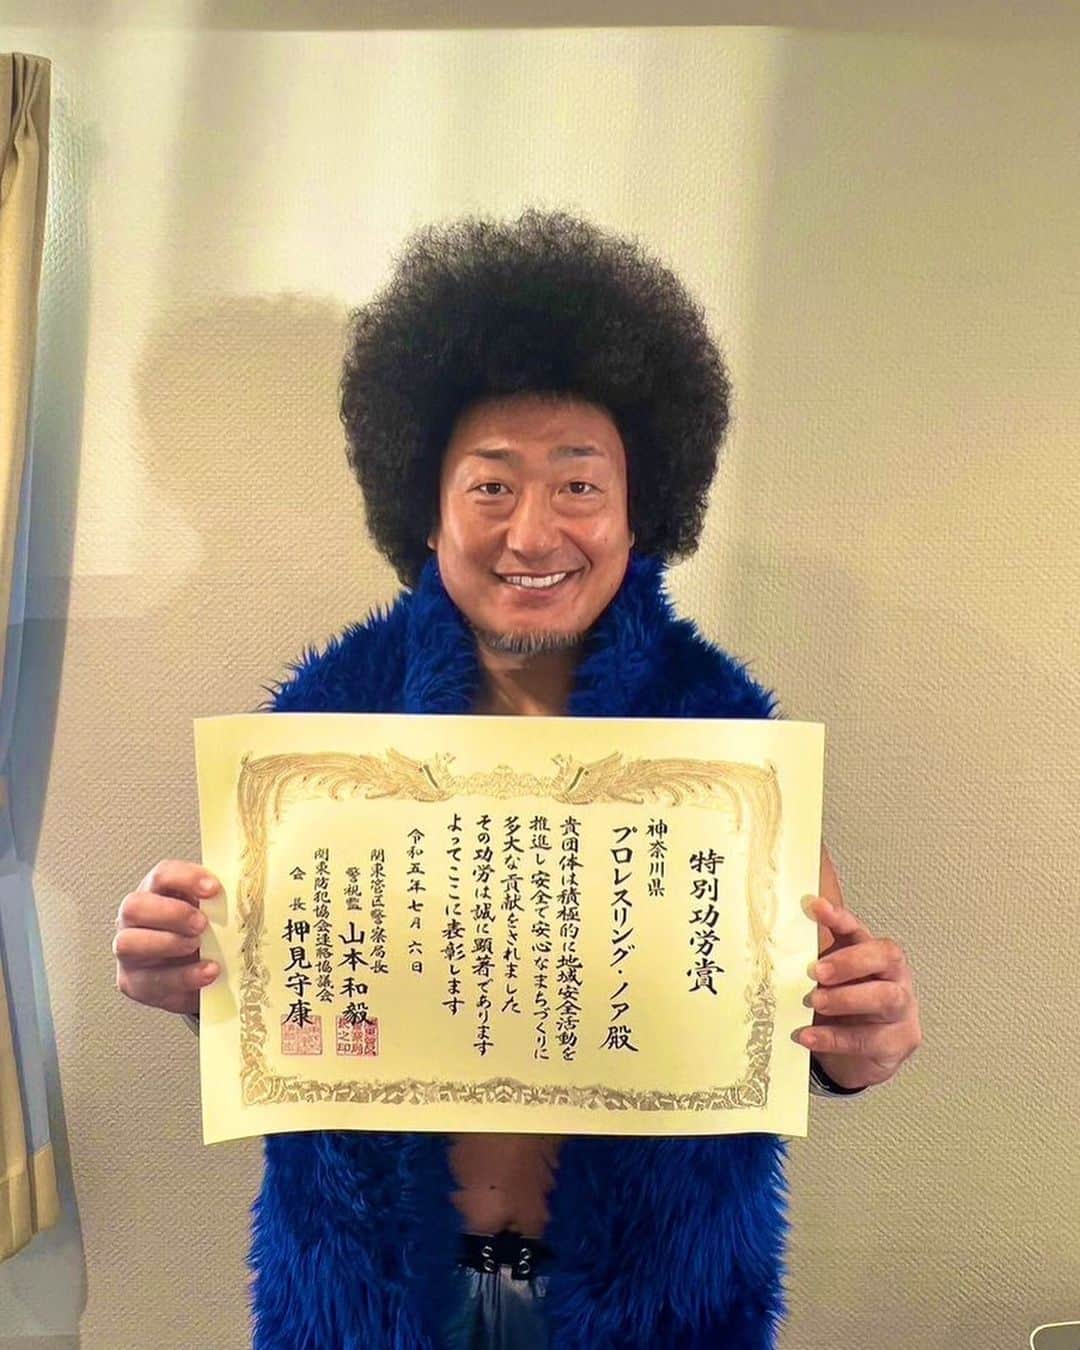 特別功労賞
神奈川県
プロレスリング・ノア殿
貴団体は積極的に地域安全活動を
推進し安全で安心なまちづくりに
多大な貢献をされました
その功労は誠に顕著であります
よってここに表彰します
令和五年七月六日
関東管区警察局長
警視監 山本和毅
関東防犯協会連絡協議会
会長 押見守康